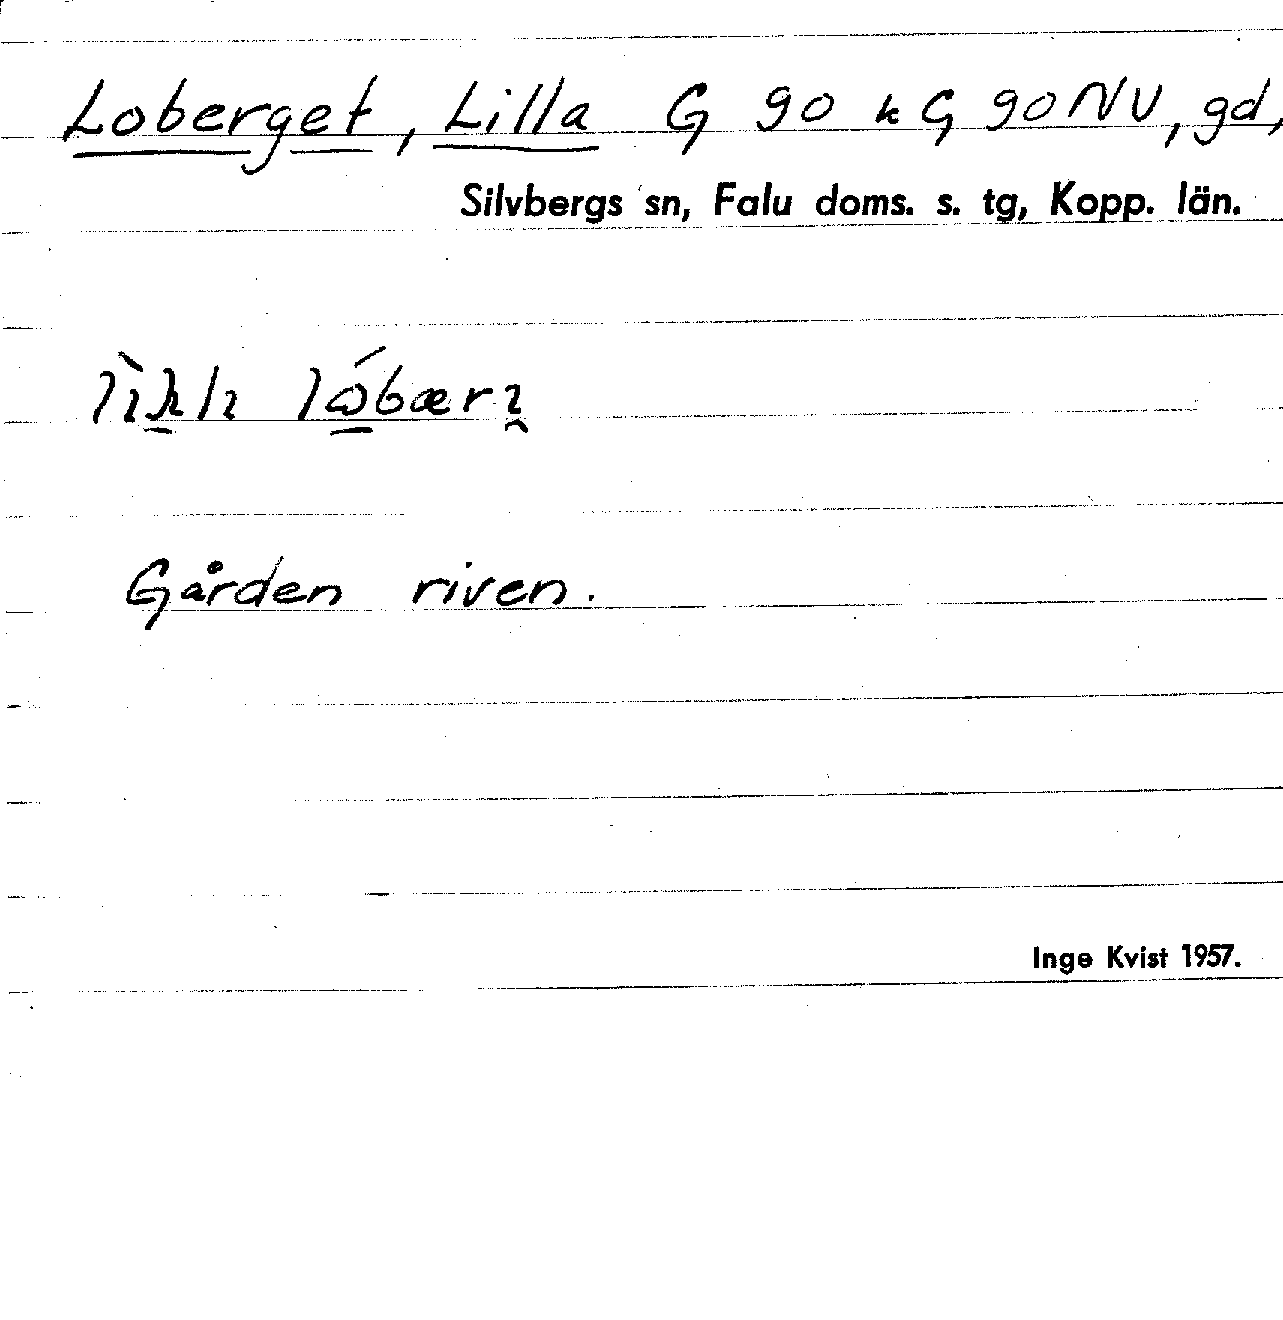 Loberget, Lilla G 90 k G 90 NV, gd,
Silvbergs sn, Falu doms. s. tg, Kopp. län.
Gården riven.
Inge Kvist 1957.